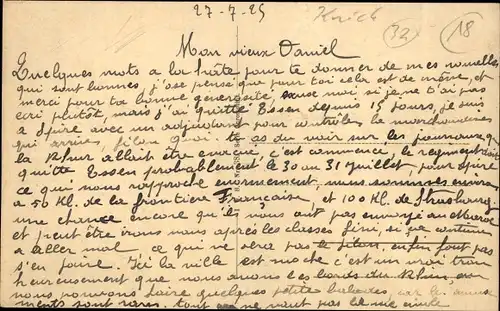 27-7-25
32
18
Mon vieux Daniel
Quelques mots a la hâte pour te donner de mes nouvelles
qui sont bonnes j'ose pense que pour toi cela est de même, et
merci pour ta bonne generosite, scuse moi si je ne t'ai pas
ecri plutôt, mais j'ai quitte Essen depuis 15 jours, je suis
a Spire avec un adjudant pour contrôler la marchandises
qui arrive, tu as du voir sur les journaux que
la Rhur allait être evacue c'est commence, le regiment doit
quitte Essen probablement le 30 au 31 Juillet, pour Spire
ce qui nous rapproche enormement, nous sommes
a 50 Kl. de la frontiere Française, et 100 Kl. de Strasbourg
une chance encore qu'ils nous ont pas envoyé au Maroc
et peut être irons nous apres les classes fini, si ça continue
a aller mal ce qui ne sera pas le enfin faut pas
s'en faire. Ici la ville est moche c'est un vrai trou
heureusement que nous avons les bords du Rhin, ou
nous pouvons faire quelques petits balades car les amuse
ments sont rares. tout ça ne vaut pas la vie civile